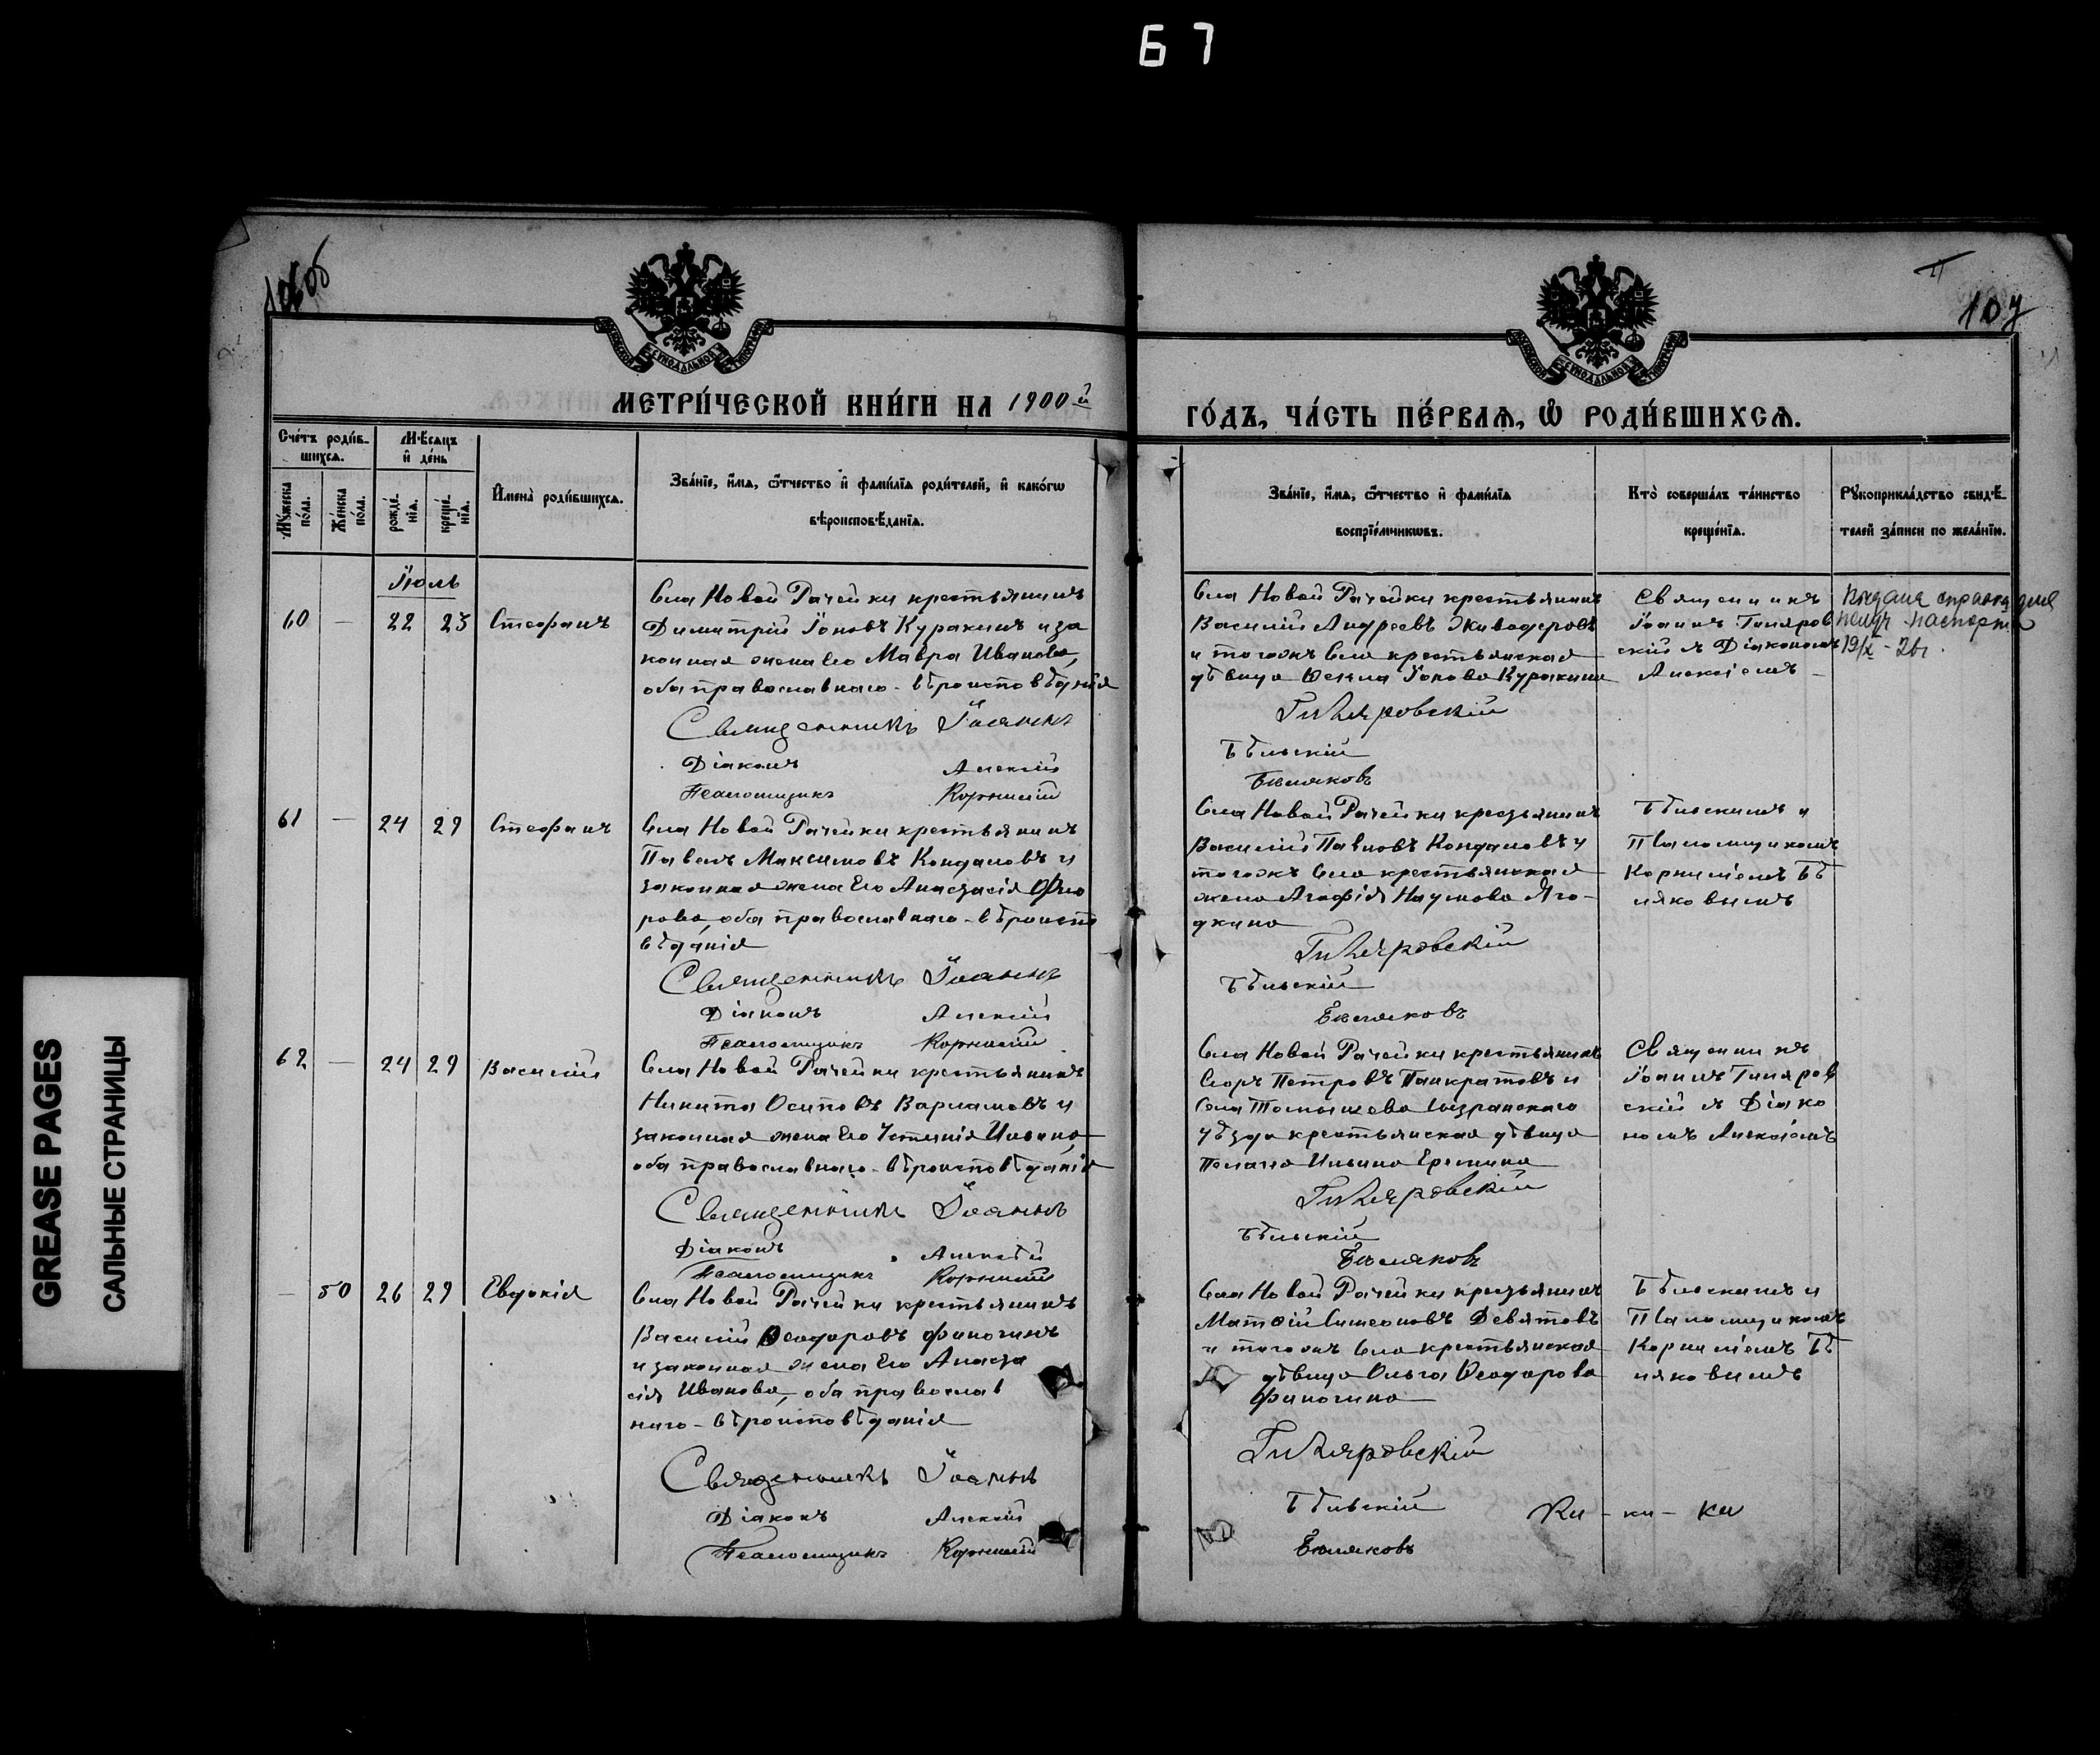 67
106об
107
МЕТРИ́ЧЕСКОЙ КНИ́ГИ НА 1900й
ГО́ДЪ, ЧА́СТЬ ПЕ́РВАѦ, Ѿ РОДИ́ВШИХСѦ.
Сче́тъ роди́в-
шихсѧ.
Мѣ́сѧцъ
и҆ де́нь
Мꙋ́жеска
по́ла.
Же́нска
по́ла.
рожде́-
нїѧ.
креще́-
нїѧ.
И҆мена̀ роди́вшихсѧ.
Зва́нїе, и҆́мѧ, ѻ҆́тчество и҆ фами́лїѧ роди́телей, и҆ како́гѡ
вѣроисповѣ́данїѧ.
Зва́нїе, и҆́мѧ, ѻ҆́тчество и҆ фами́лїѧ
воспрїе́мникѡвъ.
Кто̀ соверша́лъ та́инство
креще́нїѧ.
Рꙋкоприкла́дство свидѣ́-
телей за́писи по жела́нїю.
Іюль
60 — 22 23 Стефанъ
Села Новой Рачейки крестьянинъ
Димитрій Іоновъ Куракинъ и за
конная жена его Мавра Иванова,
оба православнаго вѣроисповѣданія
Священникъ Іоаннъ
Діаконъ Алексій
Псаломщикъ Корнилій
Села Новой Рачейки крестьянинъ
Василій Андреевъ Живодеровъ
и тогожъ села крестьянская
дѣвица Іонова Куракина
Гиляровскій
Бѣльскій
Бѣляковъ
Священникъ
Іоаннъ Гиляров
скій съ Діакономъ
Алексіемъ
Выдана справка для
паспорта
19/X - 26г.
61 — 24 29 Стефанъ
Села Новой Рачейки крестьянинъ
Павелъ Максимовъ Кондаловъ и
законная жена его Анастасія Фло
рова, оба православнаго вѣроиспо
вѣданія
Священникъ Іоаннъ
Діаконъ Алексій
Псаломщикъ Корнилій
Села Новой Рачейки крестьянинъ
Василій Павловъ Кондаловъ и
тогожъ села крестьянская
жена Агафія Наумова Яго-
дкина
Гиляровскій
Бѣльскій
Бѣляковъ
Бѣльскимъ и
Псаломщикомъ
Корниліемъ Бѣ
ляковымъ
62 — 24 29 Василій
Села Новой Рачейки крестьянинъ
Никита Осиповъ Варламовъ и
законная жена его Устинія Ильина
оба православнаго вѣроисповѣданія
Священникъ Іоаннъ
Діаконъ Алексѣй
Псаломщикъ Корнилій
Села Новой Рачейки крестьянинъ
Егоръ Петровъ Панкратовъ и
села Томышева Сызранскаго
уѣзда крестьянская дѣвица
Пелагія Ильина Еремина
Гиляровскій
Бѣльскій
Бѣляковъ
Священникъ
Іоаннъ Гиляров
скій съ Діако
номъ Алексіемъ
— 50 26 29 Евдокія
Села Новой Рачейки крестьянинъ
Василій Ѳеодоровъ Финогинъ
и законная жена его Анаста
сія Иванова, оба православ
наго вѣроисповѣданія
Священникъ Іоаннъ
Діаконъ Алексій
Псаломщикъ Корнилій
Села Новой Рачейки крестьянинъ
Матѳій Симеоновъ Девятовъ
и тогожъ села крестьянская
дѣвица Ольга Ѳеодорова
Финогина
Гиляровскій
Бѣльскій
Бѣляковъ
Бѣльскимъ и
Псаломщикомъ
Корниліемъ Бѣ
ляковымъ
GREASE PAGES
САЛЬНЫЕ СТРАНИЦЫ